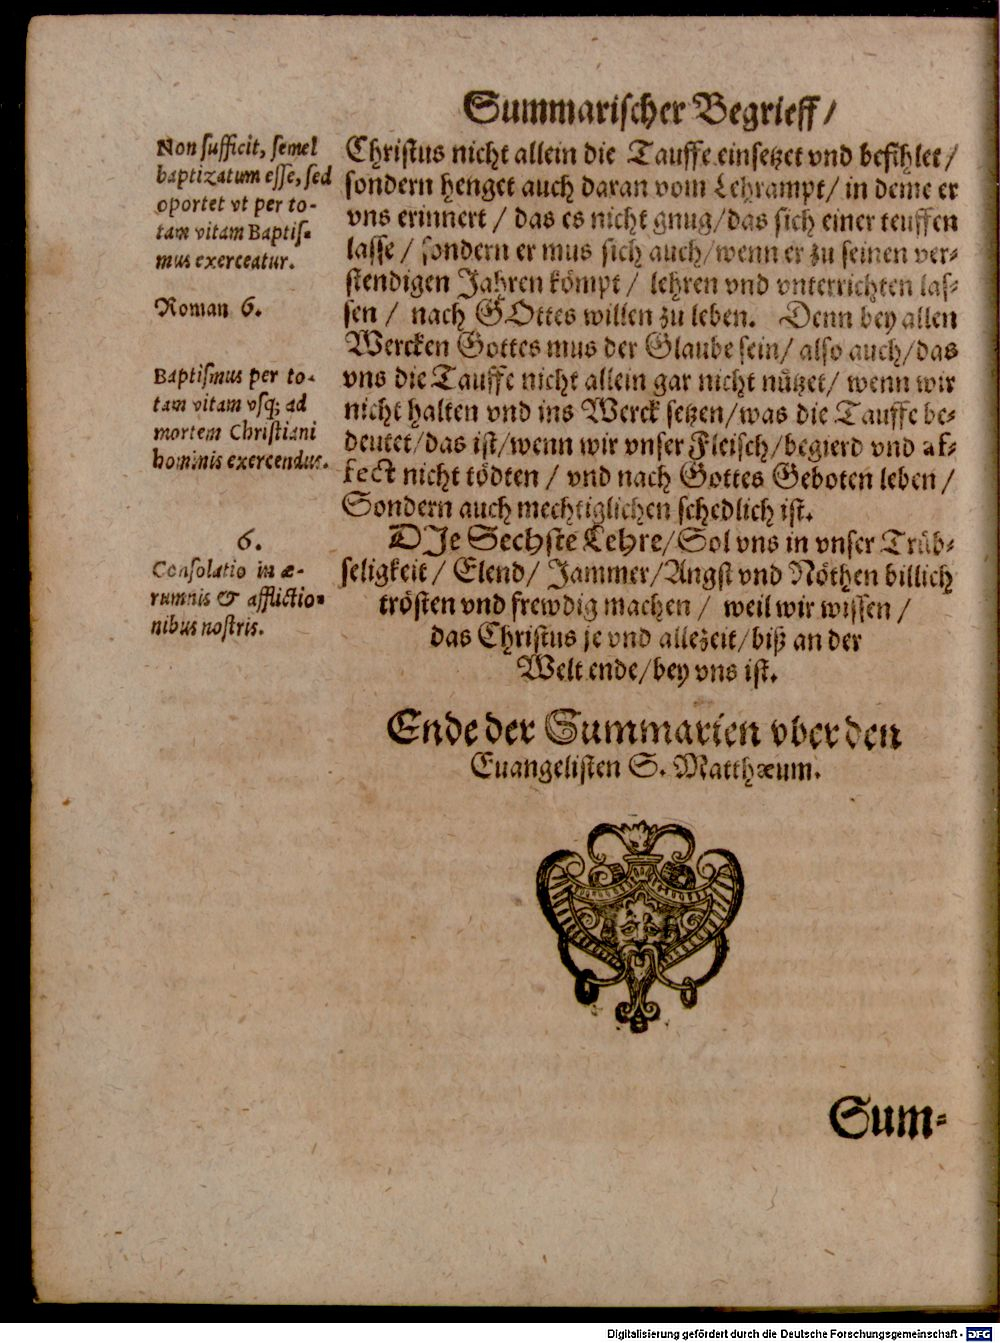 Summarischer Begrieff/
Non sufficit, semel
baptizatum esse, sed
oportet vt per to-
tam vitam Baptis-
mus exerceatur.
Roman 6.
Baptismus per to-
tam vitam vsq; ad
mortem Christiani
hominis exercendus.
6.
Consolatio in æ-
rumnis & afflictio-
nibus nostris.
Christus nicht allein die Tauffe einsetzet vnd befihlet/
sondern henget auch daran vom Lehrampt/ in deme er
vns erinnert/ das es nicht gnug/das sich einer teuffen
lasse/ sondern er mus sich auch/wenn er zu seinen ver-
stendigen Jahren kömpt/ lehren vnd vnterrichten las-
sen/ nach GOttes willen zu leben. Denn bey allen
Wercken Gottes mus der Glaube sein/ also auch/das
vns die Tauffe nicht allein gar nicht nützet/ wenn wir
nicht halten vnd ins Werck setzen/was die Tauffe be-
deutet/das ist/wenn wir vnser Fleisch/begierd vnd af-
fect nicht tödten/ vnd nach Gottes Geboten leben/
Sondern auch mechtiglichen schedlich ist.
DIe Sechste Lehre/Sol vns in vnser Trüb-
seligkeit/ Elend/ Jammer/Angst vnd Nöthen billich
trösten vnd frewdig machen/ weil wir wissen/
das Christus je vnd allezeit/biß an der
Welt ende/bey vns ist.
Ende der Summarien vber den
Euangelisten S. Matthæum.
Sum-
Digitalisierung gefördert durch die Deutsche Forschungsgemeinschaft - DFG